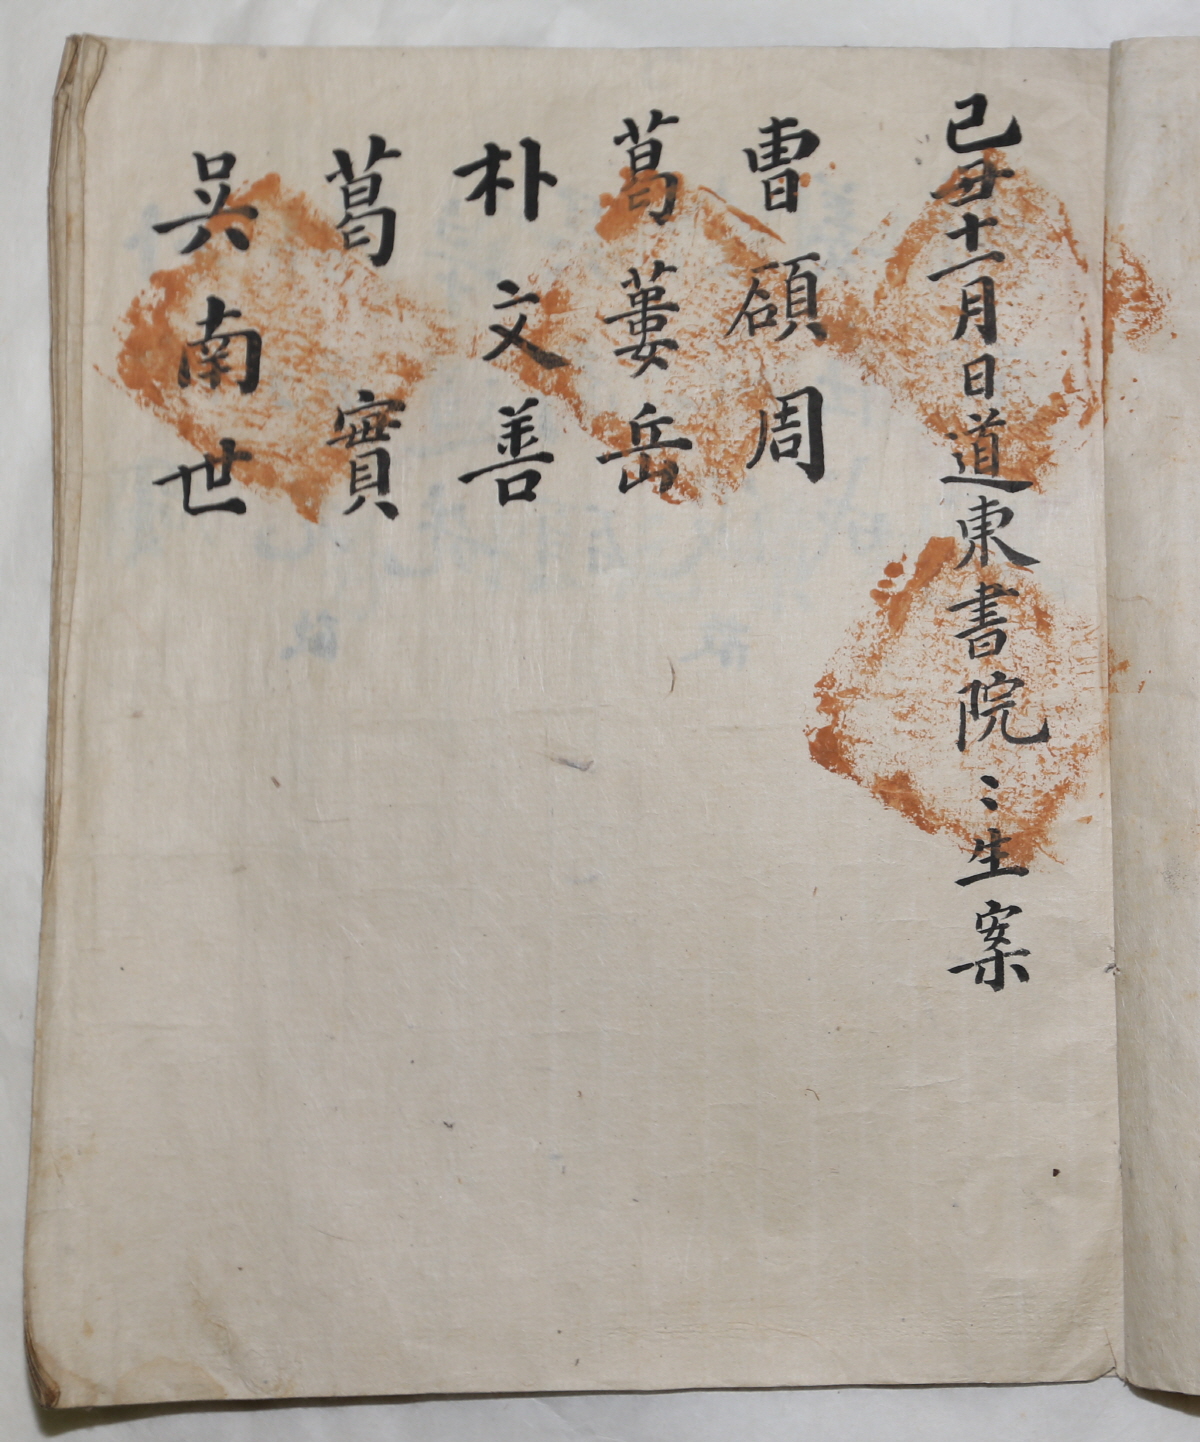 己丑十一月日道東書院〻生案
曺碩周
葛蔞岳
朴文善
葛實
吳南世